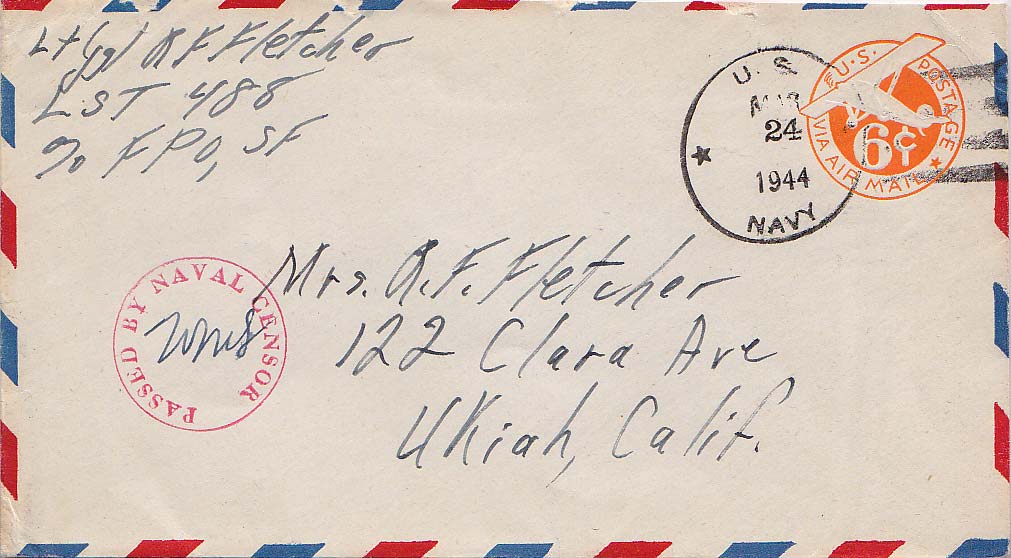 Lt (jg) R F Fletcher
LST 488
c/o FPO, SF
U.S. POSTAGE
VIA AIR MAIL
6¢
U. S.
24
1944
NAVY
PASSED BY NAVAL CENSOR
Mrs. R.F. Fletcher
122 Clara Ave
Ukiah, Calif.